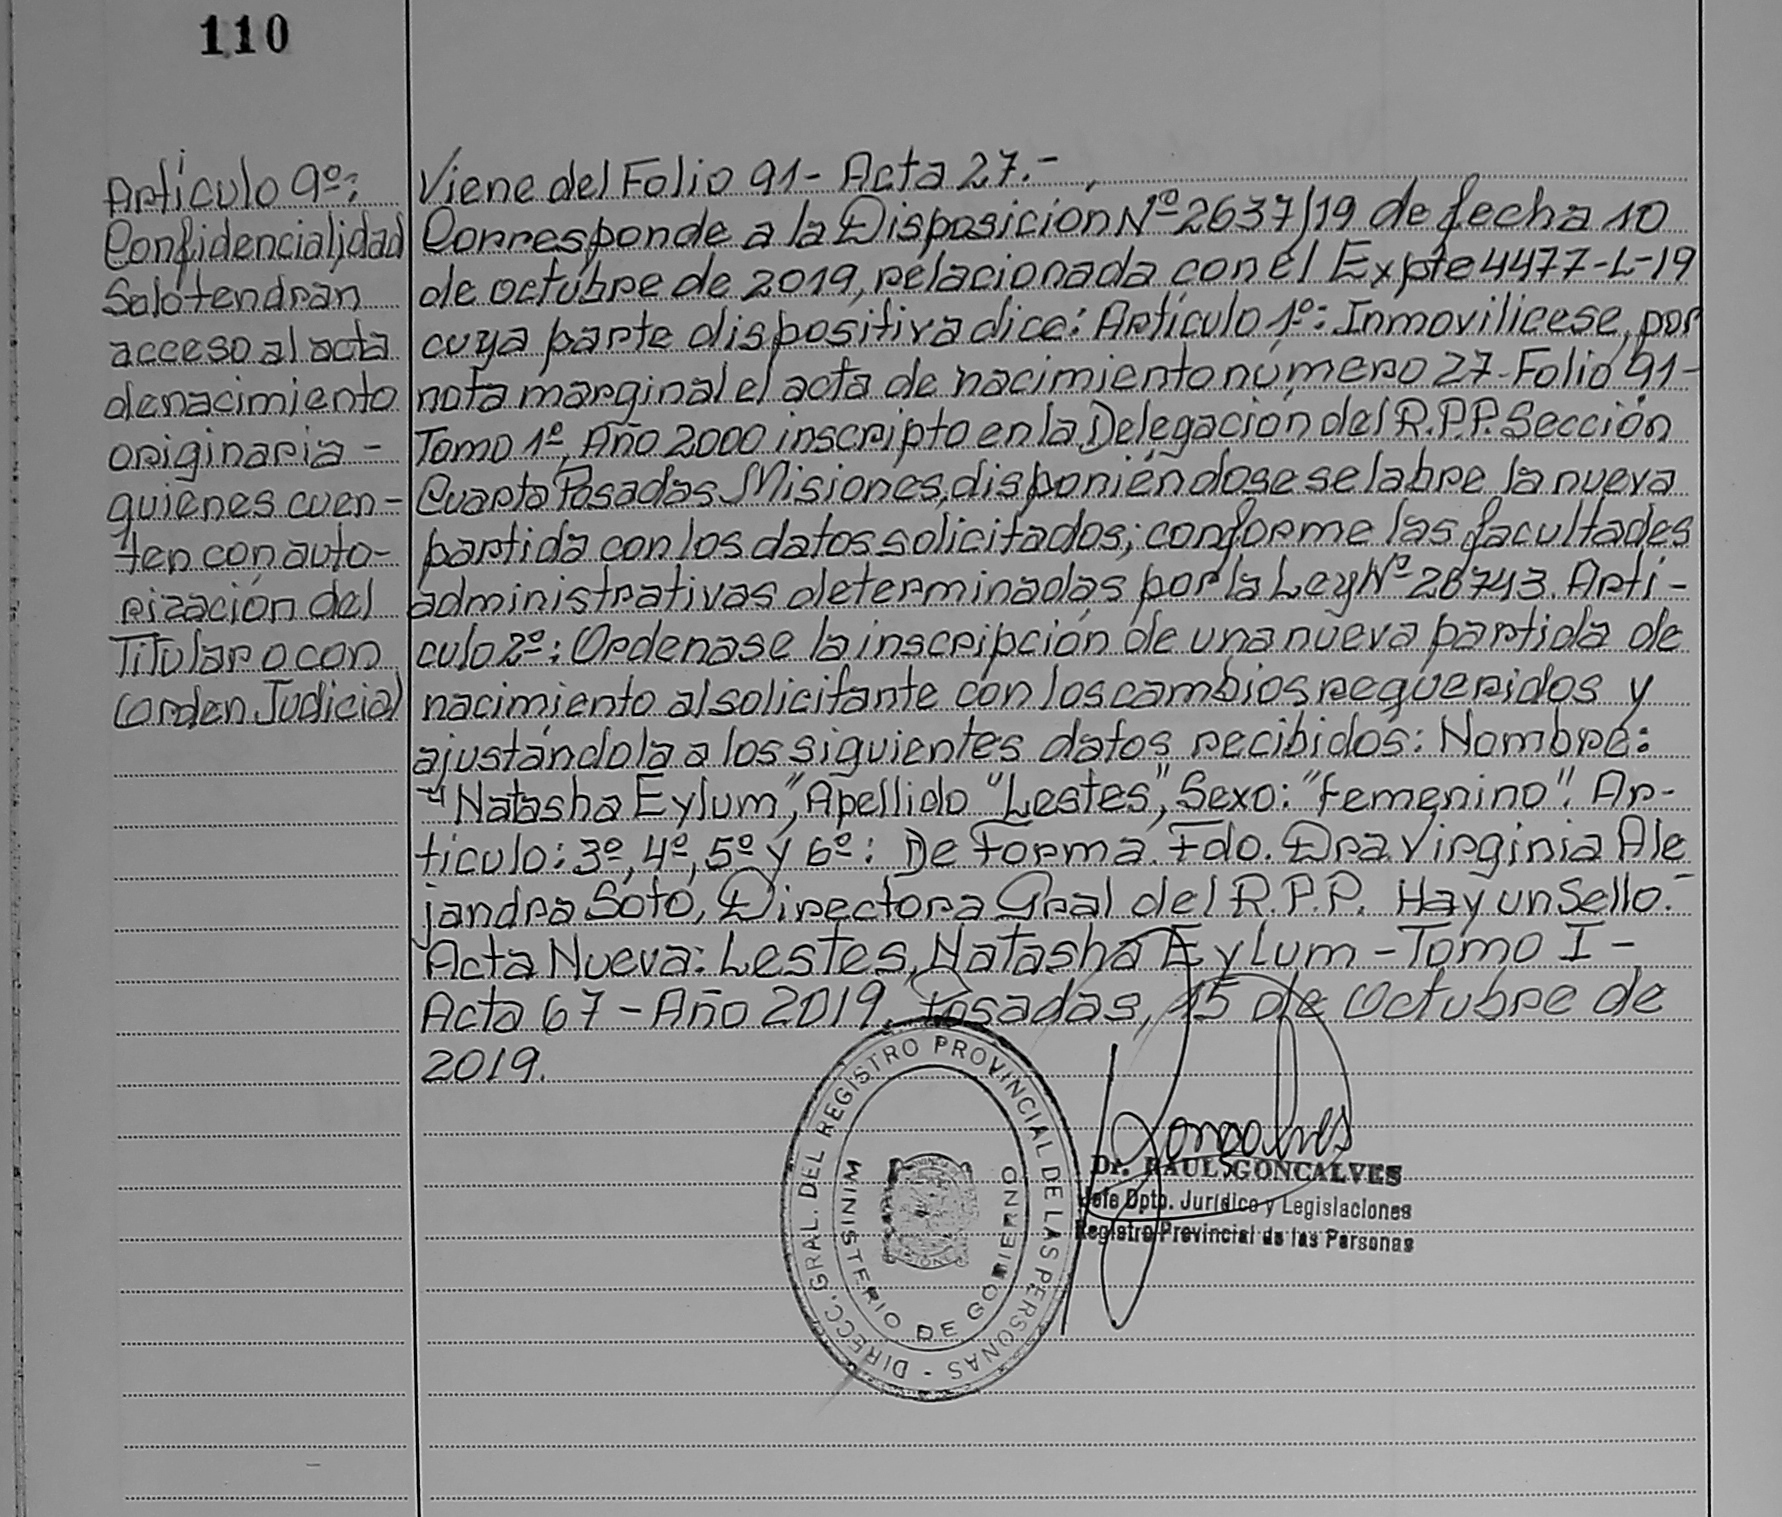 110
Artículo 9º:
Confidencialidad
Solo tendran
acceso al acta
de nacimiento
originaria -
quienes cuen-
ten con auto-
rización del
Titular o con
(orden Judicial
Viene del Folio 91 - Acta 27.-
Corresponde a la Disposición Nº 2637/19 de fecha 10
de octubre de 2019, relacionada con el Expte 4477-L-19
cuya parte dispositiva dice: Artículo 1º: Inmovilicese, por
nota marginal el acta de nacimiento número 27-Folio 91-
Tomo 1º, Año 2000 inscripto en la Delegación del R.P.P. Sección
Cuarta Posadas Misiones, disponiéndose se labre la nueva
partida con los datos solicitados; conforme las facultades
administrativas determinadas por la Ley Nº 26743. Arti-
culo 2º: Ordenase la inscripción de una nueva partida de
nacimiento al solicitante con los cambios requeridos y
ajustándola a los siguientes datos recibidos: Nombre:
"Natasha Eylum", Apellido "Lestes", Sexo: "femenino". Ar-
ticulo: 3º, 4º, 5º y 6º: De Forma. Fdo. Dra Virginia Ale
jandra Soto, Directora Gral del R.P.P. Hay un Sello.-
Acta Nueva: Lestes, Natasha Eylum - Tomo I -
Acta 67 - Año 2019. Posadas, 15 de Octubre de
2019.
DIRECC. GRAL. DEL REGISTRO PROVINCIAL DE LAS PERSONAS -
MINISTERIO DE GOBIERNO
Goncalves
Dr. RAUL GONCALVES
Jefe Dpto. Jurídico y Legislaciones
Registro Provincial de las Personas